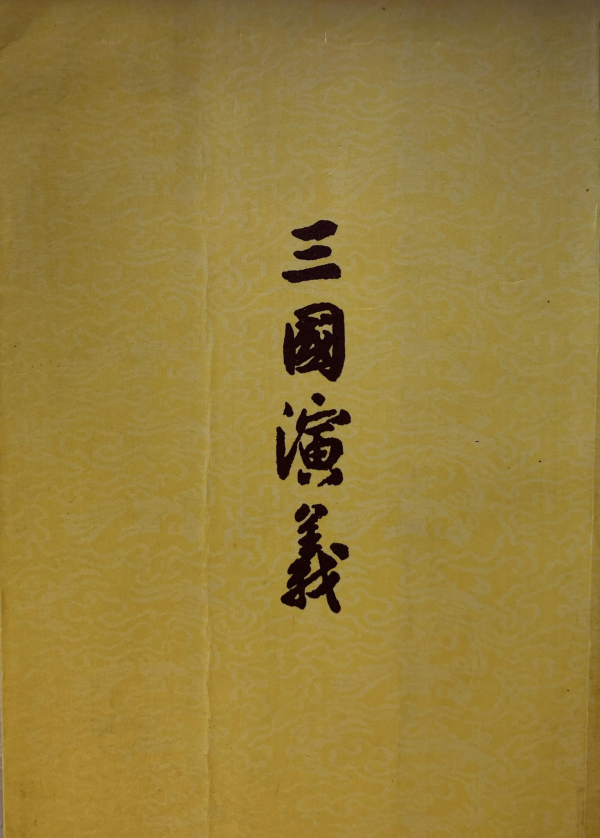 三國演義